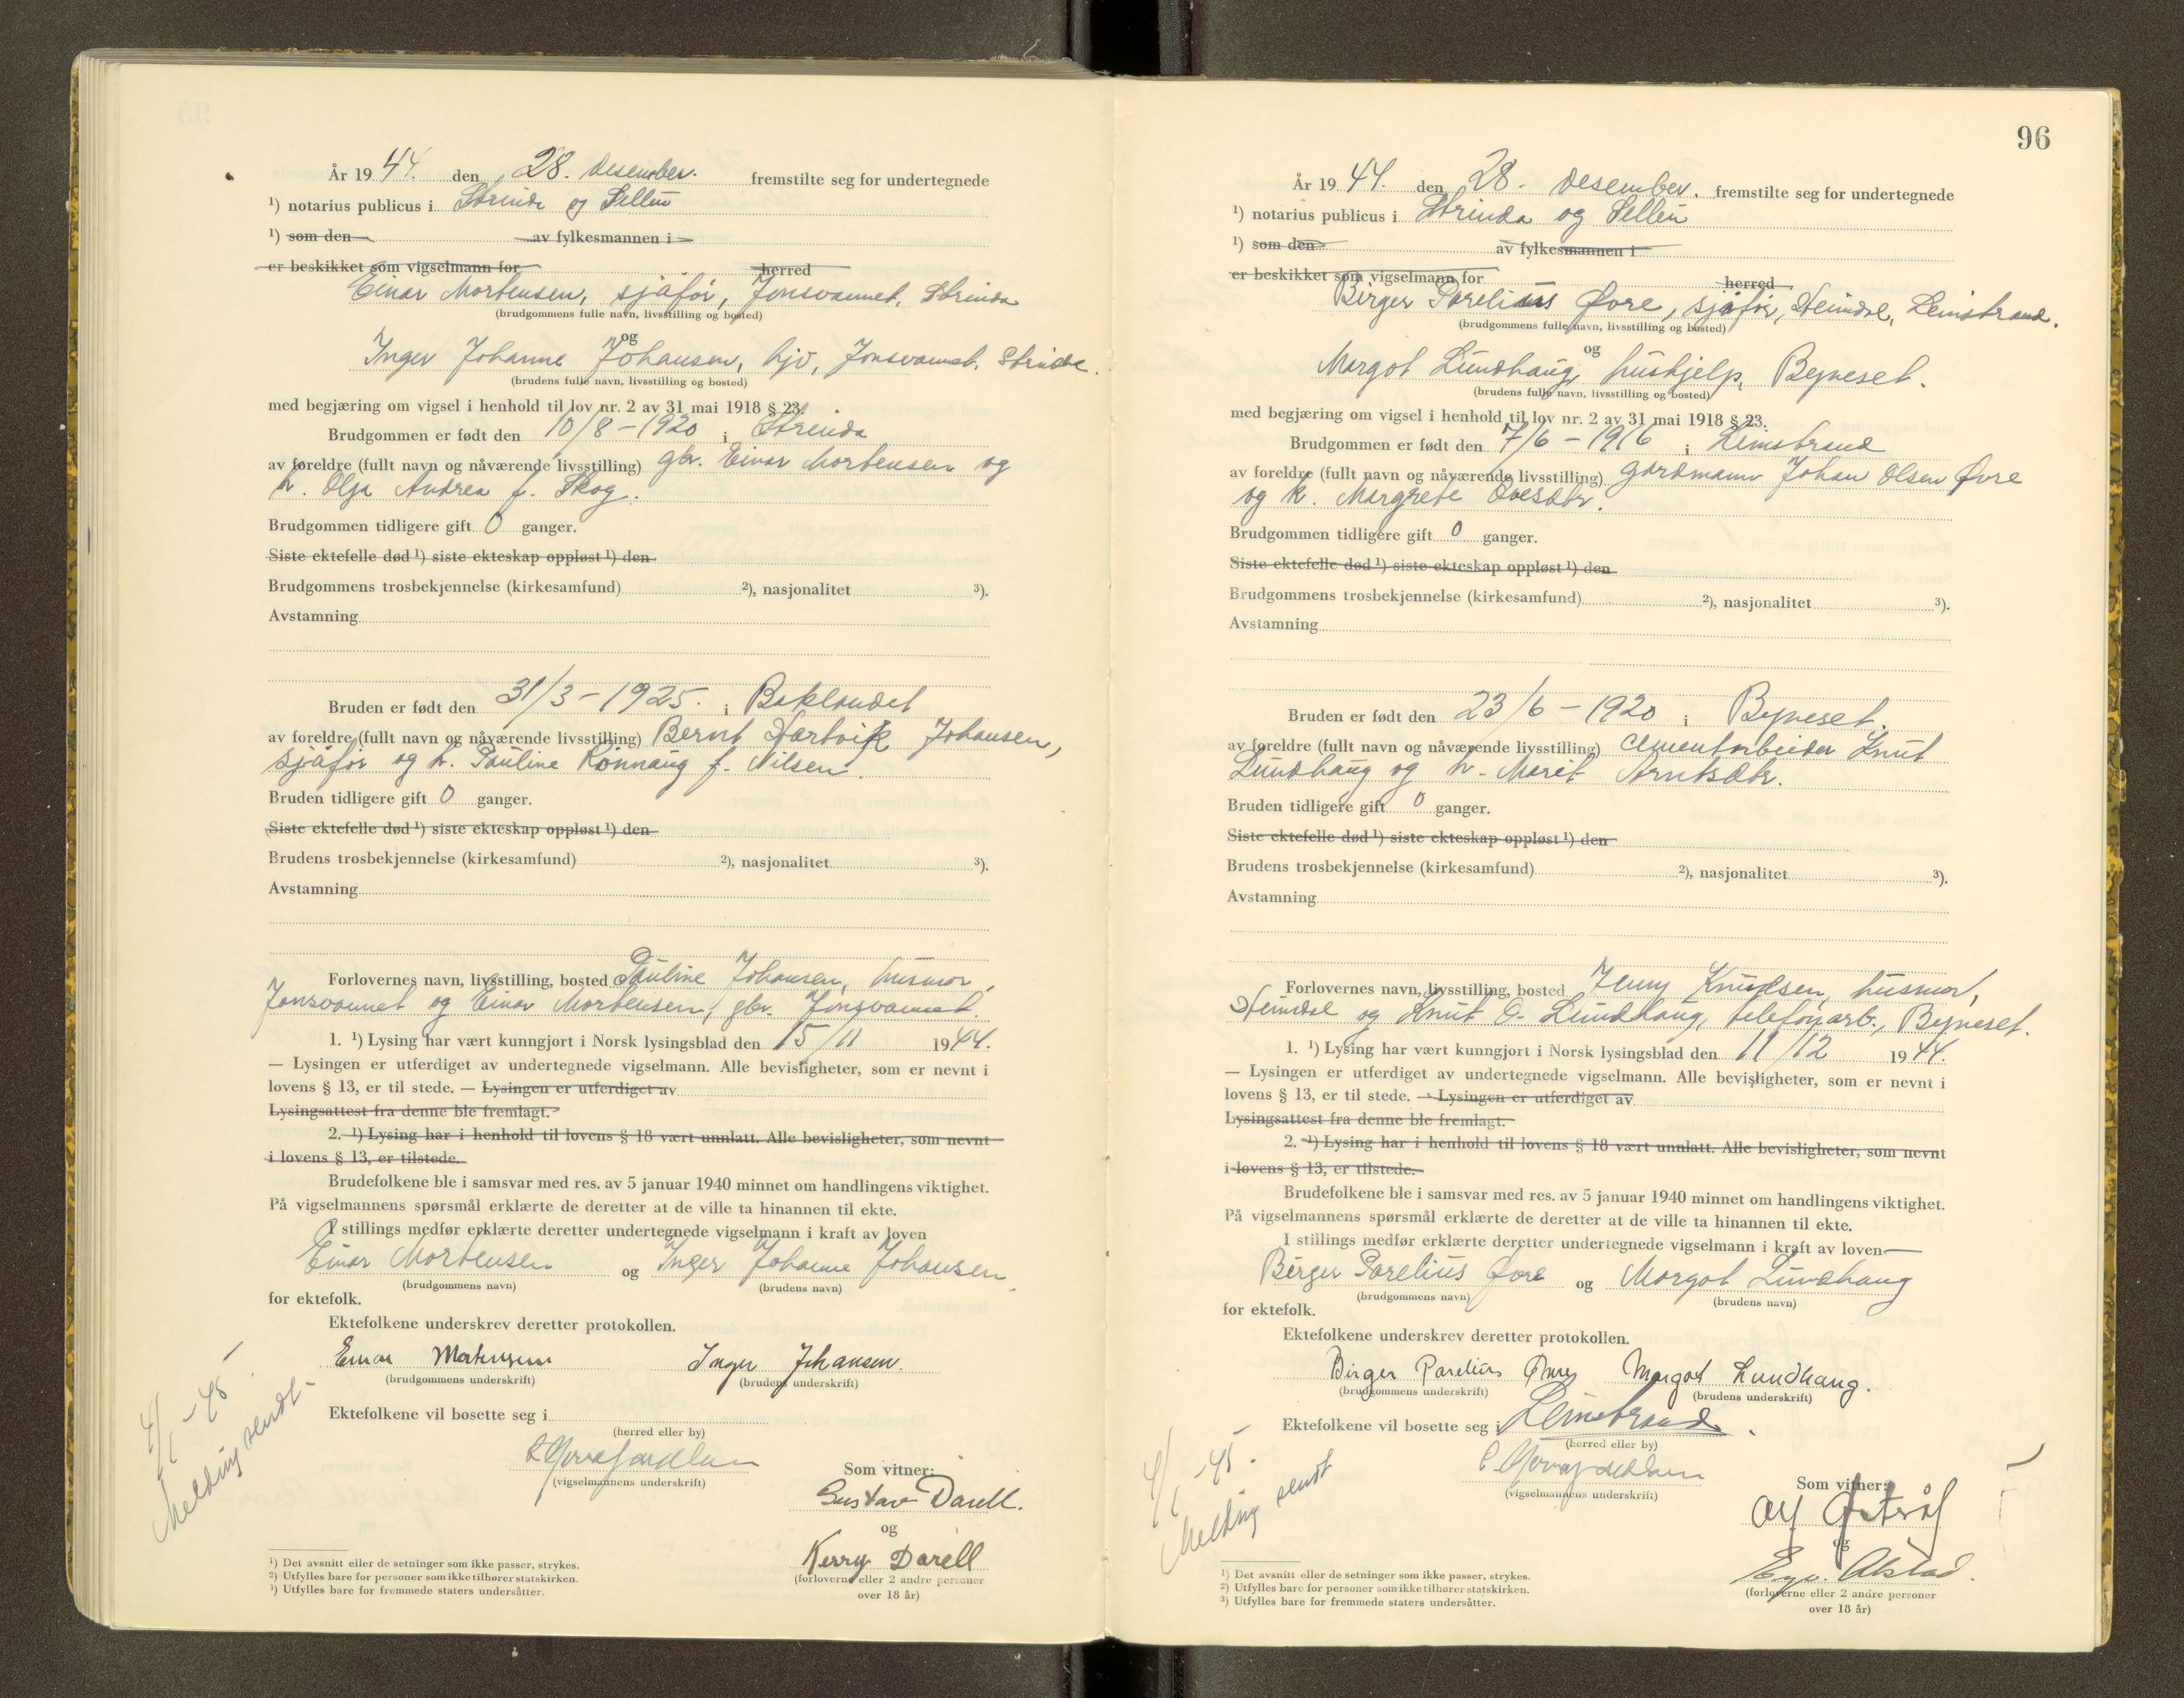 År 1944. den 28. desember. fremstilte seg for undertegnede
¹) notarius publicus i Strinda og Selbu
¹) som den av fylkesmannen i
er beskikket som vigselmann for herred
Einar Mortensen, sjåfør, Jonsvannet, Strinda
(brudgommens fulle navn, livsstilling og bosted)
og
Inger Johanne Johansen, hjv, Jonsvannet, Strinda.
(brudens fulle navn, livsstilling og bosted)
med begjæring om vigsel i henhold til lov nr. 2 av 31 mai 1918 § 23.
Brudgommen er født den 10/8-1920 i Strinda
av foreldre (fullt navn og nåværende livsstilling) gbr. Einar Mortensen og
h. Olga Andrea f. Skog.
Brudgommen tidligere gift 0 ganger.
Siste ektefelle død ¹) siste ekteskap oppløst ¹) den
Brudgommens trosbekjennelse (kirkesamfund) ²), nasjonalitet ³).
Avstamning
Bruden er født den 31/3-1925. i Baklandet
av foreldre (fullt navn og nåværende livsstilling) Bernt Hartvik Johansen,
sjåfør og h. Pauline Rønnaug f. Nilsen.
Bruden tidligere gift 0 ganger.
Siste ektefelle død ¹) siste ekteskap oppløst ¹) den
Brudens trosbekjennelse (kirkesamfund) ²), nasjonalitet ³).
Avstamning
Forlovernes navn, livsstilling, bosted Pauline Johansen, husmor,
Jonsvannet og Einar Mortensen, gbr. Jonsvannet.
1. ¹) Lysing har vært kunngjort i Norsk lysingsblad den 15/11 1944.
— Lysingen er utferdiget av undertegnede vigselmann. Alle bevisligheter, som er nevnt i
lovens § 13, er til stede. — Lysingen er utferdiget av
Lysingsattest fra denne ble fremlagt.
2. ¹) Lysing har i henhold til lovens § 18 vært unnlatt. Alle bevisligheter, som nevnt
i lovens § 13, er tilstede.
Brudefolkene ble i samsvar med res. av 5 januar 1940 minnet om handlingens viktighet.
På vigselmannens spørsmål erklærte de deretter at de ville ta hinannen til ekte.
I stillings medfør erklærte deretter undertegnede vigselmann i kraft av loven
Einar Mortensen og Inger Johanne Johansen
(brudgommens navn) (brudens navn)
for ektefolk.
Ektefolkene underskrev deretter protokollen.
Einar Mortensen Inger Johansen.
(brudgommens underskrift) (brudens underskrift)
Ektefolkene vil bosette seg i
(herred eller by)
(vigselmannens underskrift)
Som vitner:
Gustav Darell.
og
Kerry Darell
(forloverne eller 2 andre personer
over 18 år)
4/1-45.
Melding sendt-
¹) Det avsnitt eller de setninger som ikke passer, strykes.
²) Utfylles bare for personer som ikke tilhører statskirken.
³) Utfylles bare for fremmede staters undersåtter.
96
År 1944. den 28. desember. fremstilte seg for undertegnede
¹) notarius publicus i Strinda og Selbu
¹) som den av fylkesmannen i
er beskikket som vigselmann for herred
Birger Parelius Øvre, sjåfør, Heimdal, Leinstrand.
(brudgommens fulle navn, livsstilling og bosted)
og
Margot Lundhaug, hushjelp, Byneset.
(brudens fulle navn, livsstilling og bosted)
med begjæring om vigsel i henhold til lov nr. 2 av 31 mai 1918 § 23.
Brudgommen er født den 7/6-1916 i Leinstrand
av foreldre (fullt navn og nåværende livsstilling) gardmann Johan Olsen Øvre
og h. Margrete Ovesdtr.
Brudgommen tidligere gift 0 ganger.
Siste ektefelle død ¹) siste ekteskap oppløst ¹) den
Brudgommens trosbekjennelse (kirkesamfund) ²), nasjonalitet ³).
Avstamning
Bruden er født den 23/6-1920 i Byneset.
av foreldre (fullt navn og nåværende livsstilling) cementarbeider Knut
Lundhaug og h. Marit Arntsdtr.
Bruden tidligere gift 0 ganger.
Siste ektefelle død ¹) siste ekteskap oppløst ¹) den
Brudens trosbekjennelse (kirkesamfund) ²), nasjonalitet ³).
Avstamning
Forlovernes navn, livsstilling, bosted Jenny Knudsen, husmor,
Heimdal og Knut O. Lundhaug, telefonarb., Byneset.
1. ¹) Lysing har vært kunngjort i Norsk lysingsblad den 11/12 1944.
— Lysingen er utferdiget av undertegnede vigselmann. Alle bevisligheter, som er nevnt i
lovens § 13, er til stede. — Lysingen er utferdiget av
Lysingsattest fra denne ble fremlagt.
2. ¹) Lysing har i henhold til lovens § 18 vært unnlatt. Alle bevisligheter, som nevnt
i lovens § 13, er tilstede.
Brudefolkene ble i samsvar med res. av 5 januar 1940 minnet om handlingens viktighet.
På vigselmannens spørsmål erklærte de deretter at de ville ta hinannen til ekte.
I stillings medfør erklærte deretter undertegnede vigselmann i kraft av loven
Birger Parelius Øvre og Margot Lundhaug
(brudgommens navn) (brudens navn)
for ektefolk.
Ektefolkene underskrev deretter protokollen.
Birger Parelius Øvre Margot Lundhaug.
(brudgommens underskrift) (brudens underskrift)
Ektefolkene vil bosette seg i Leinstrand.
(herred eller by)
(vigselmannens underskrift)
Som vitner:
Alf
og
Alstad.
(forloverne eller 2 andre personer
over 18 år)
4/1-45.
Melding sendt
¹) Det avsnitt eller de setninger som ikke passer, strykes.
²) Utfylles bare for personer som ikke tilhører statskirken.
³) Utfylles bare for fremmede staters undersåtter.